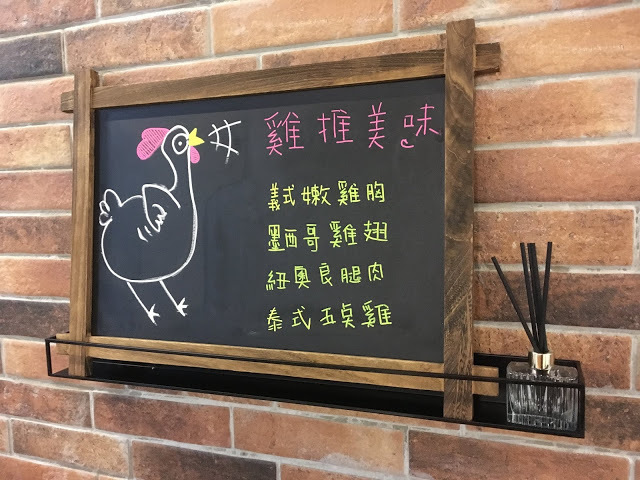 雞推美味
義式嫩雞胸
墨西哥雞翅
紐奧良腿肉
泰式五雞